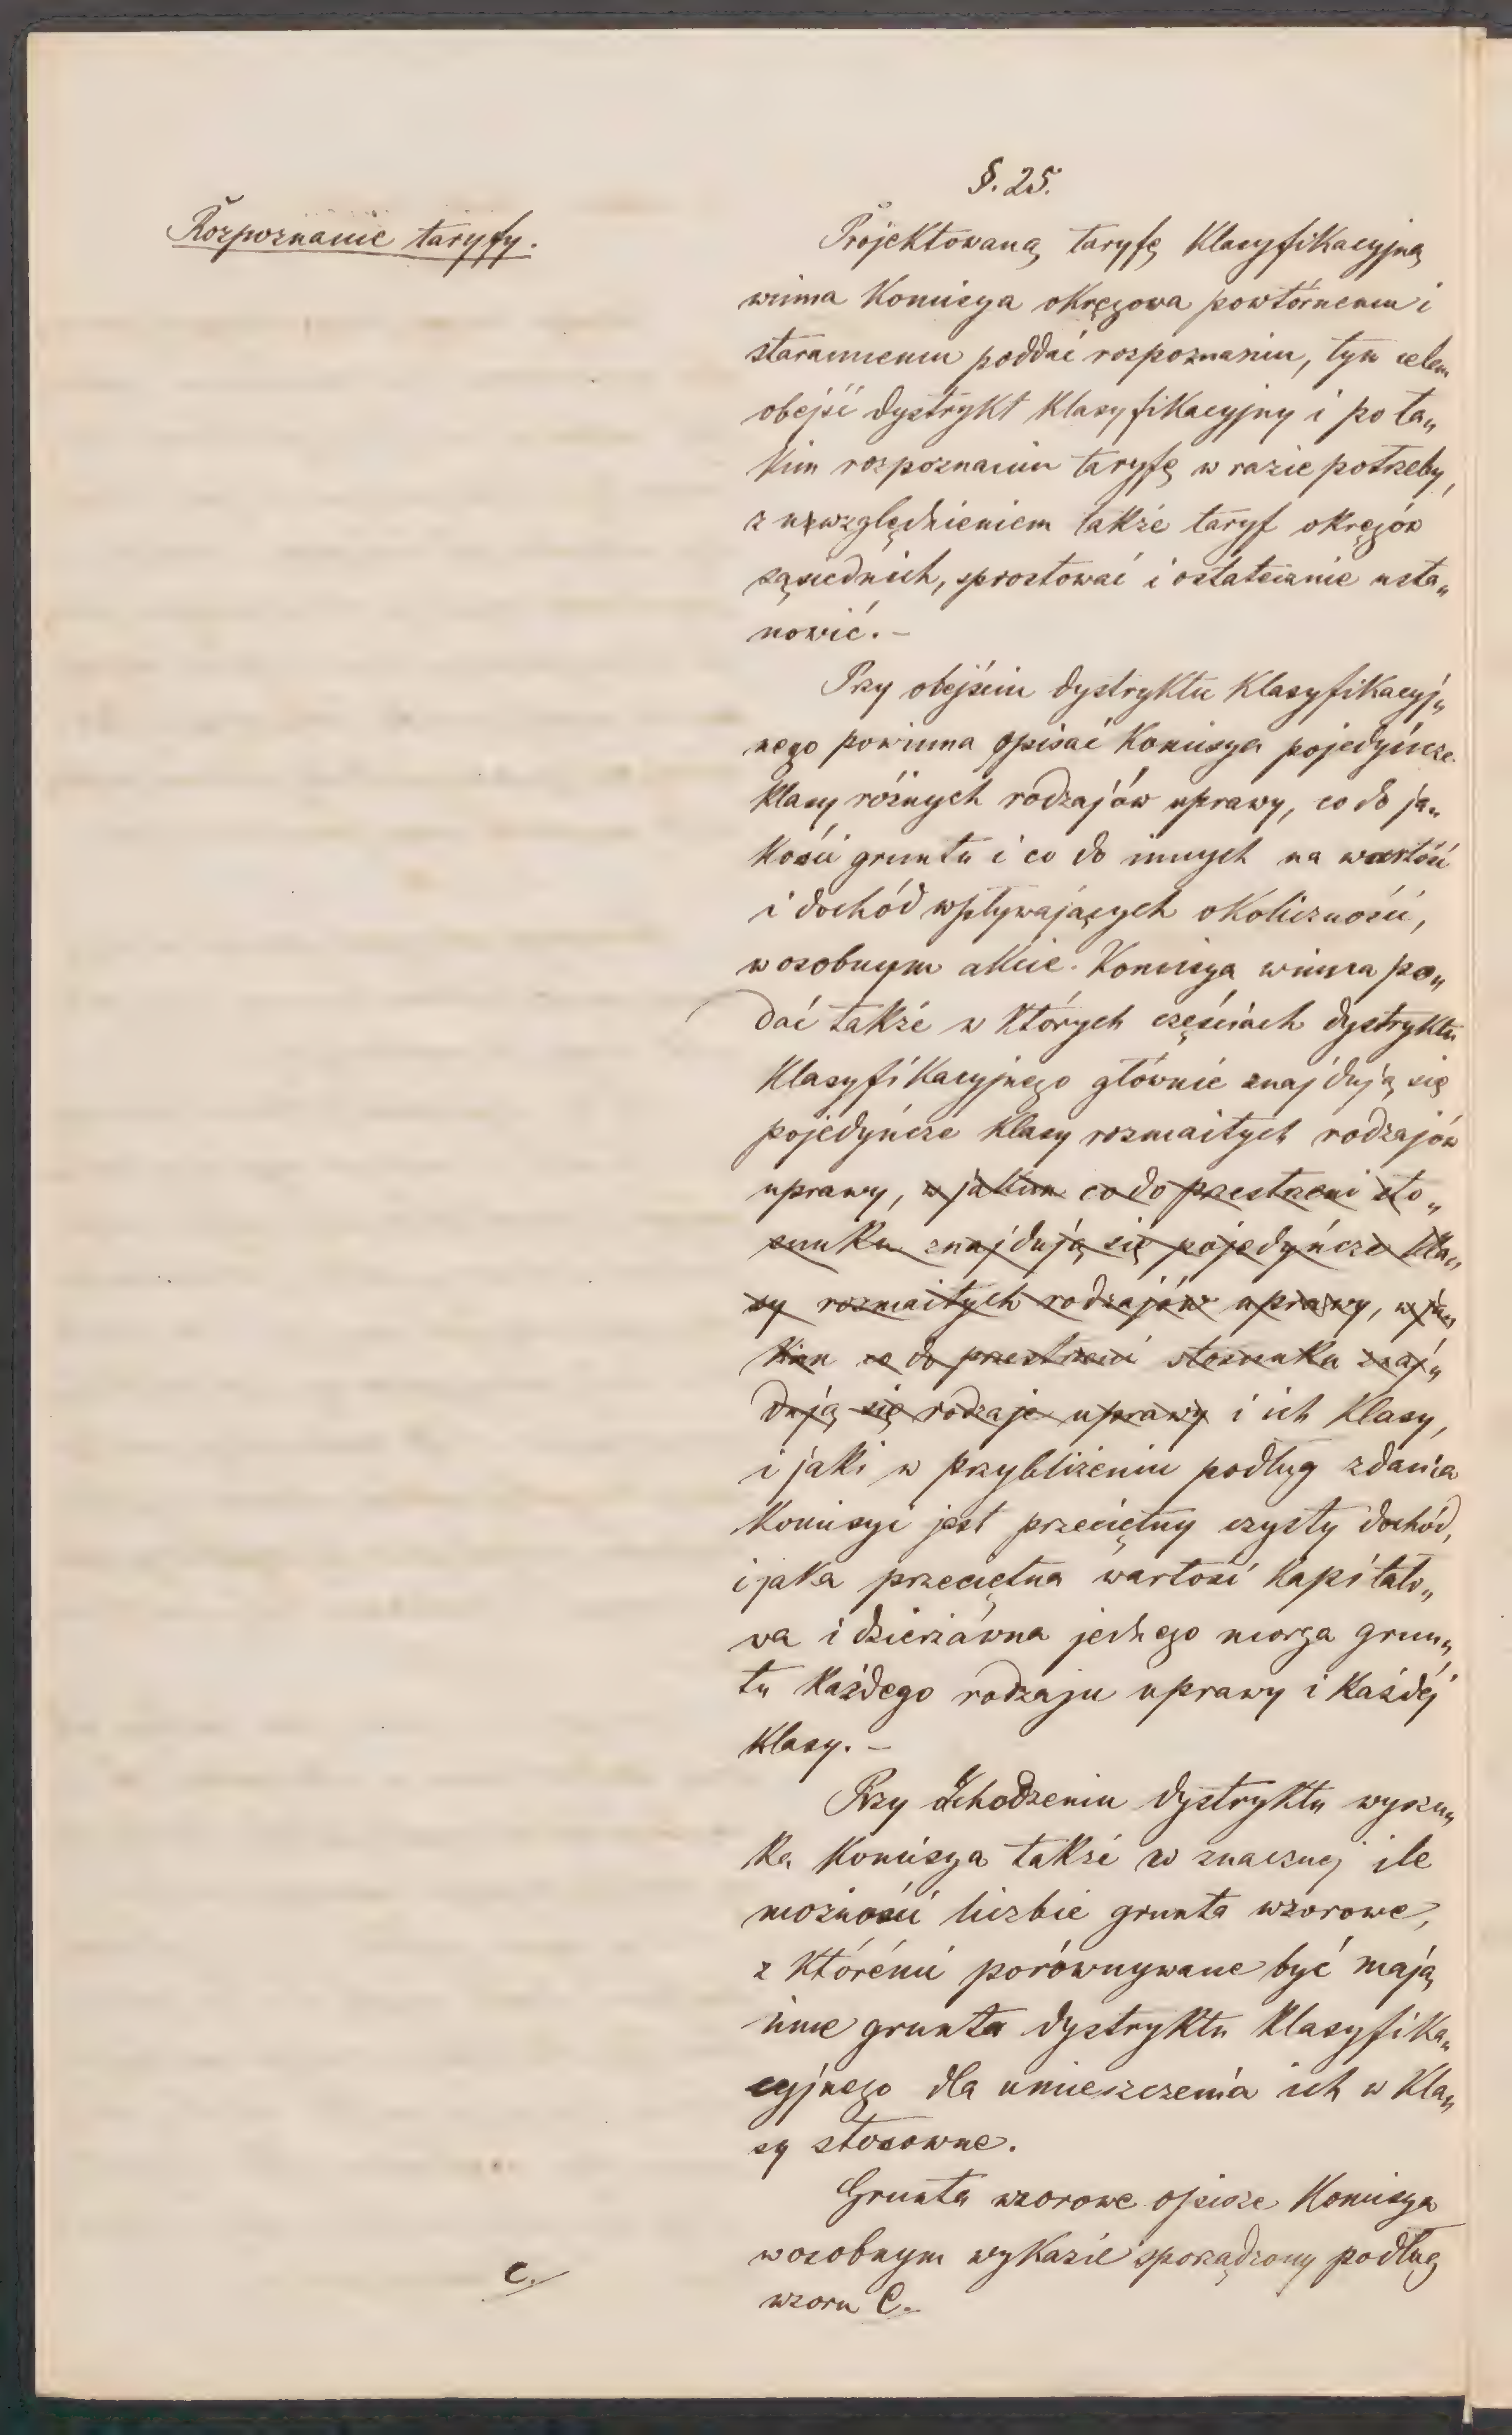 §. 25.
Rozpoznanie taryfy.
Projektowaną taryfę klasyfikacyjną
winna Komisya okręgowa powtórnemu i
starannemu poddać rozpoznaniu, tym celem
obejść dystrykt klasyfikacyjny i po ta„
kim rozpoznaniu taryfę w razie potrzeby,
z uwzględnieniem także taryf okręgów
sąsiednich, sprostować i ostatecznie usta„
nowić. –
Przy obejściu dystryktu klasyfikacyj„
nego powinna opisać Komisya pojedyńcze
klasy różnych rodzajów uprawy, co do ja„
kości gruntu i co do innych na wartość
i dochód wpływających okoliczności,
w osobnym akcie. Komisya winna po„
dać także w których częściach dystryktu
klasyfikacyjnego głównie znajdują się
pojedyńcze klasy rozmaitych rodzajów
uprawy, w jakim co do przestrzeni sto„
sunku znajdują się pojedyńcze kla„
sy rozmaitych rodzajów uprawy, w ja„
kim co do przestrzeni stosunku znaj„
dują się rodzaje uprawy i ich klasy,
i jaki w przybliżeniu podług zdania
Komisyi jest przeciętny czysty dochód,
i jaka przeciętna wartość kapitało„
wa i dzierżawna jednego morga grun„
tu każdego rodzaju uprawy i każdéj
klasy. –
Przy obchodzeniu dystryktu wyszu„
ka Komisya także w znacznej ile
możności liczbie grunta wzorowe,
z którémi porównywane być mają
inne grunta dystryktu klasyfika„
cyjnego dla umieszczenia ich w kla„
sy stosowne.
Grunta wzorowe opisze Komisya
w osobnym wykazie sporządzony podług
C.
wzoru C.